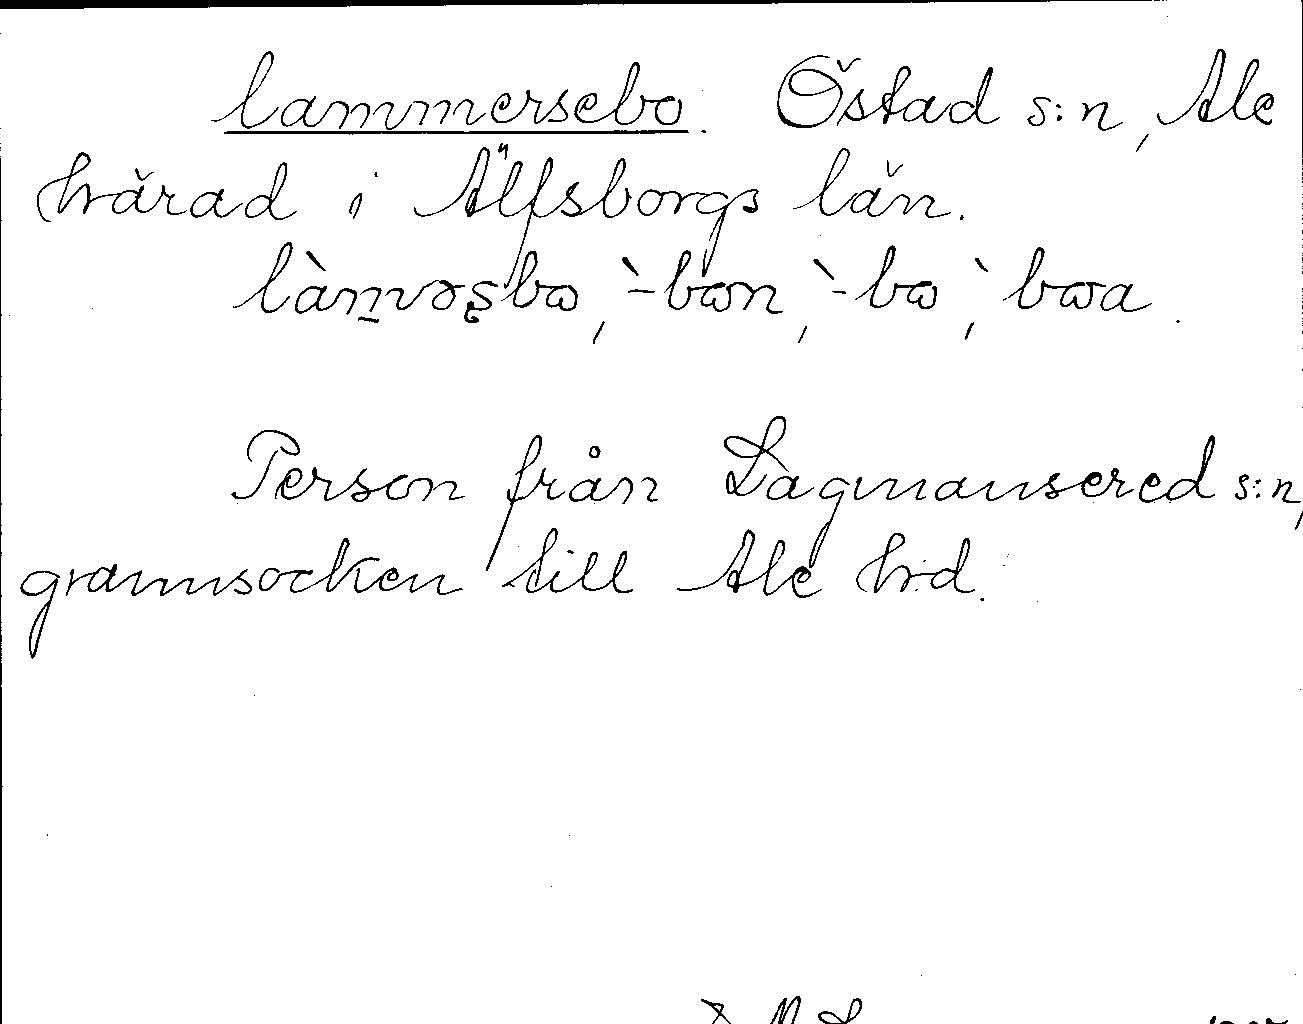 lammersebo. Östad s:n, Ale
härad i Älfsborgs län.
Person från Lagmansered s:n,
grannsocken till Ale hrd.